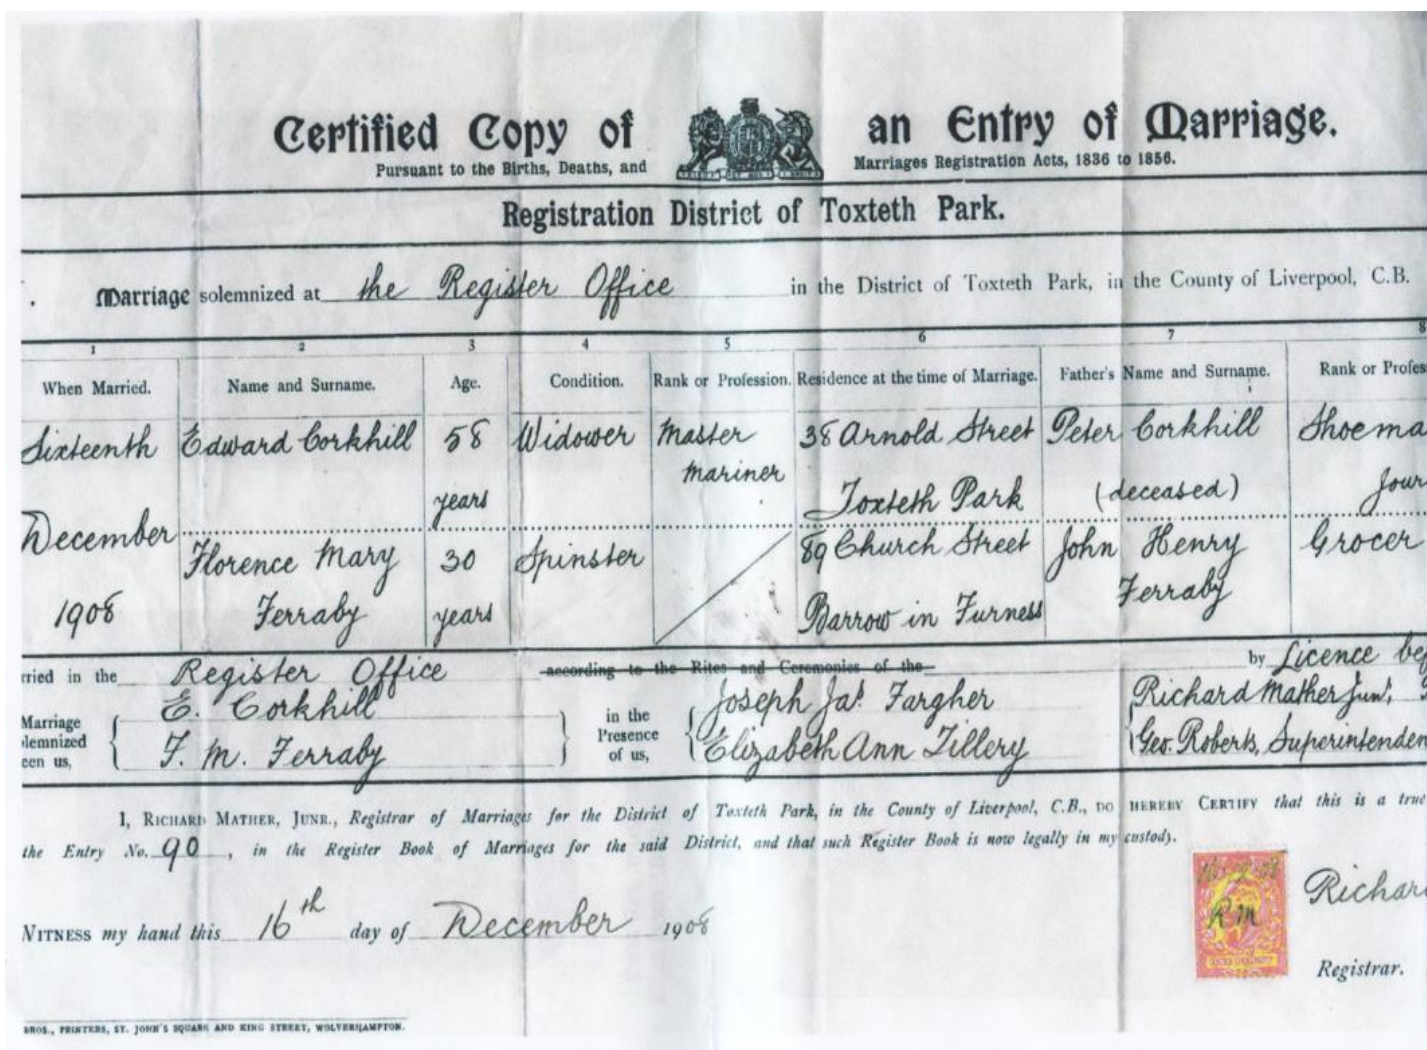 Certified Copy of an Entry of Marriage.
Pursuant to the Births, Deaths, and Marriages Registration Acts, 1836 to 1856.
Registration District of Toxteth Park.
Marriage solemnized at the Register Office in the District of Toxteth Park, in the County of Liverpool, C.B.
1 2 3 4 5 6 7 8
When Married. Name and Surname. Age. Condition. Rank or Profession. Residence at the time of Marriage. Father's Name and Surname. Rank or Profes
Sixteenth Edward Corkhill 58 Widower Master 38 Arnold Street Peter Corkhill Shoema
Mariner
years Toxteth Park (deceased) Jour
December
Florence Mary 30 Spinster 89 Church Street John Henry Grocer
1908 Ferraby years Barrow in Furness Ferraby
rried in the Register Office according to the Rites and Ceremonies of the by Licence bef
Marriage E. Corkhill in the Joseph Jas. Fargher Richard Mather Junr.
olemnized Presence
een us, F. M. Ferraby of us, Elizabeth Ann Tillery Geo. Roberts, Superintenden
I, RICHARD MATHER, JUNR., Registrar of Marriages for the District of Toxteth Park, in the County of Liverpool, C.B., DO HEREBY CERTIFY that this is a true
the Entry No. 90, in the Register Book of Marriages for the said District, and that such Register Book is now legally in my custody.
WITNESS my hand this 16th day of December 1908
RM
Richar
Registrar.
BROS., PRINTERS, ST. JOHN'S SQUARE AND KING STREET, WOLVERHAMPTON.